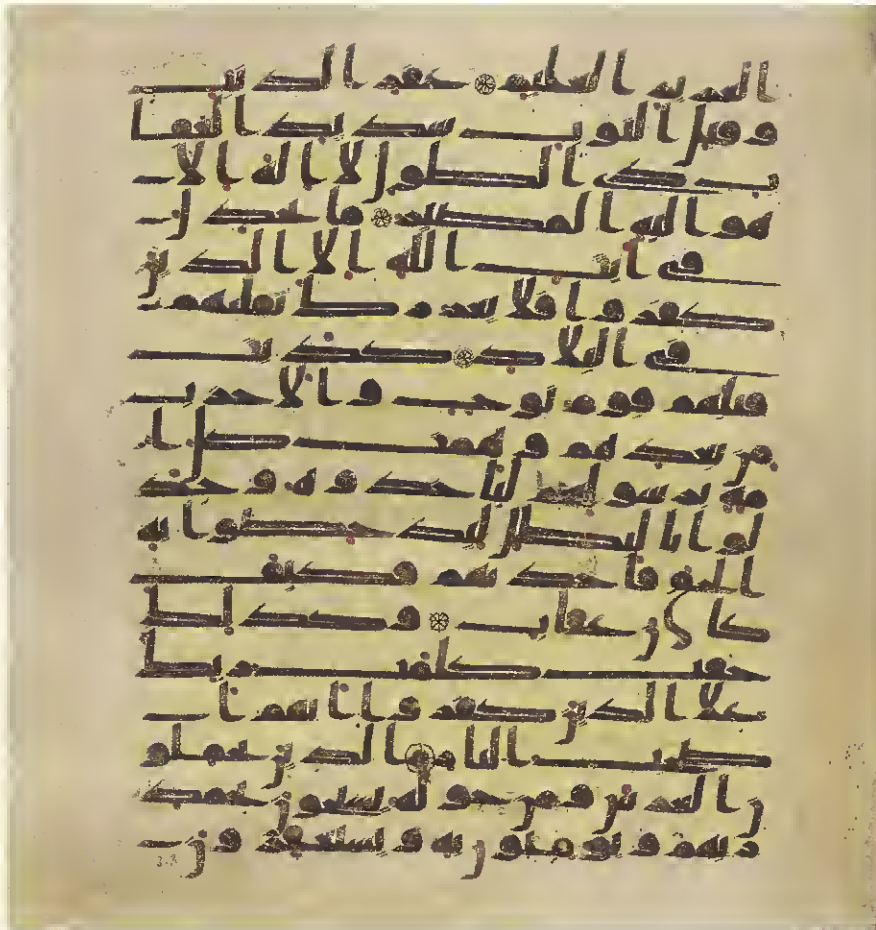 العزيز العليم ۝ غفر الذنب
وقبل التوب شديد العقا
ب ذي الطول لا اله الا
هو اليه المصير ۝ ما يجدل
في ايت الله الا الذين
كفروا فلا يغررك تقلبهم
في البلد ۝ كذبت
قبلهم قوم نوح والاحزب
من بعدهم وهمت كل ا
مة برسولهم لياخذوه وجد
لوا بالبطل ليدحضوا به
الحق فاخذتهم فكيف
كان عقاب ۝ وكذلك
حقت كلمت ربك
على الذين كفروا انهم ا
صحب النار ۝ الذين يحملو
ن العرش ومن حوله يسبحون بحمد
ربهم ويومنون به ويستغفرون